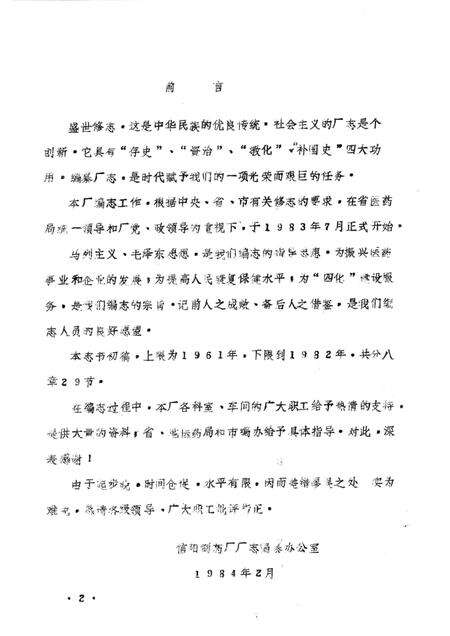 前 言
盛世修志。这是中华民族的优良传统。社会主义的厂志是个
创新。它具有“存史”、“资治”、“教化”、“补国史”四大功
用。编纂厂志。是时代赋予我们的一项光荣而艰巨的任务。
本厂编志工作。根据中央、省、市有关修志的要求。在省医药
局统一领导和厂党、政领导的重视下。于1983年7月正式开始。
马列主义、毛泽东思想。是我们编志的指导思想。为振兴医药
事业和企业的发展；为提高人民健复保健水平；为“四化”建设服
务。是我们编志的宗旨。记前人之成败、备后人之借鉴。是我们编
志人员的良好愿望。
本志书初稿。上限为1961年。下限到1982年。共分八
章29节。
在编志过程中。本厂各科室、车间的广大职工给予热情的支持。
提供大量的资料；省、地医药局和市编办给予具体指导。对此。深
表感谢！
由于起步晚。时间仓促。水平有限。因而遗错漏误之处 实为
难免。敬请各级领导、广大职工批评指正。
信阳制药厂厂志编委办公室
1984年2月
·2·